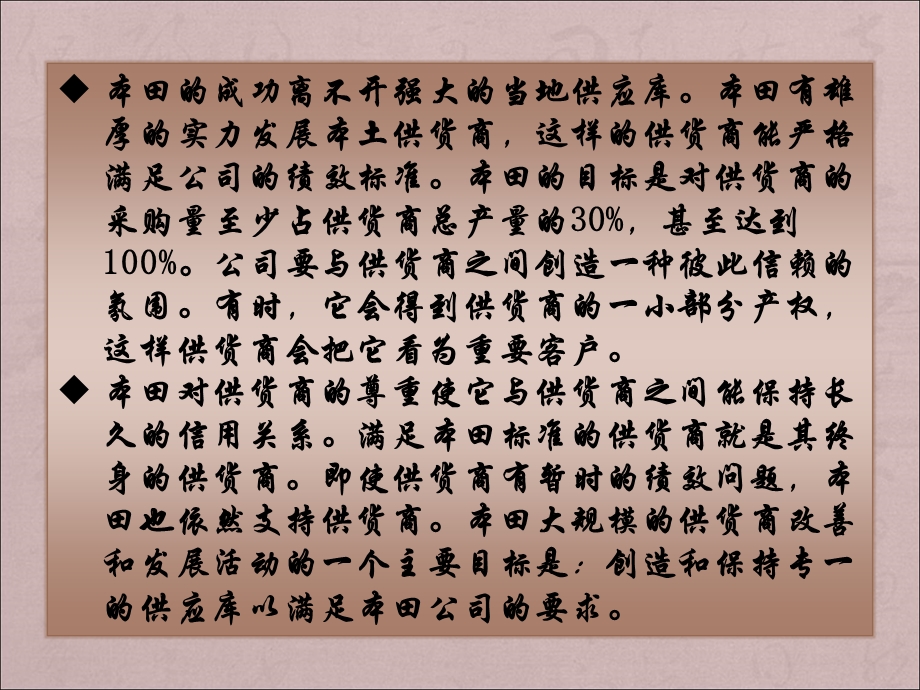 ◆ 本田的成功离不开强大的当地供应库。本田有雄
厚的实力发展本土供货商，这样的供货商能严格
满足公司的绩效标准。本田的目标是对供货商的
采购量至少占供货商总产量的30%，甚至达到
100%。公司要与供货商之间创造一种彼此信赖的
氛围。有时，它会得到供货商的一小部分产权，
这样供货商会把它看为重要客户。
◆ 本田对供货商的尊重使它与供货商之间能保持长
久的信用关系。满足本田标准的供货商就是其终
身的供货商。即使供货商有暂时的绩效问题，本
田也依然支持供货商。本田大规模的供货商改善
和发展活动的一个主要目标是：创造和保持专一
的供应库以满足本田公司的要求。